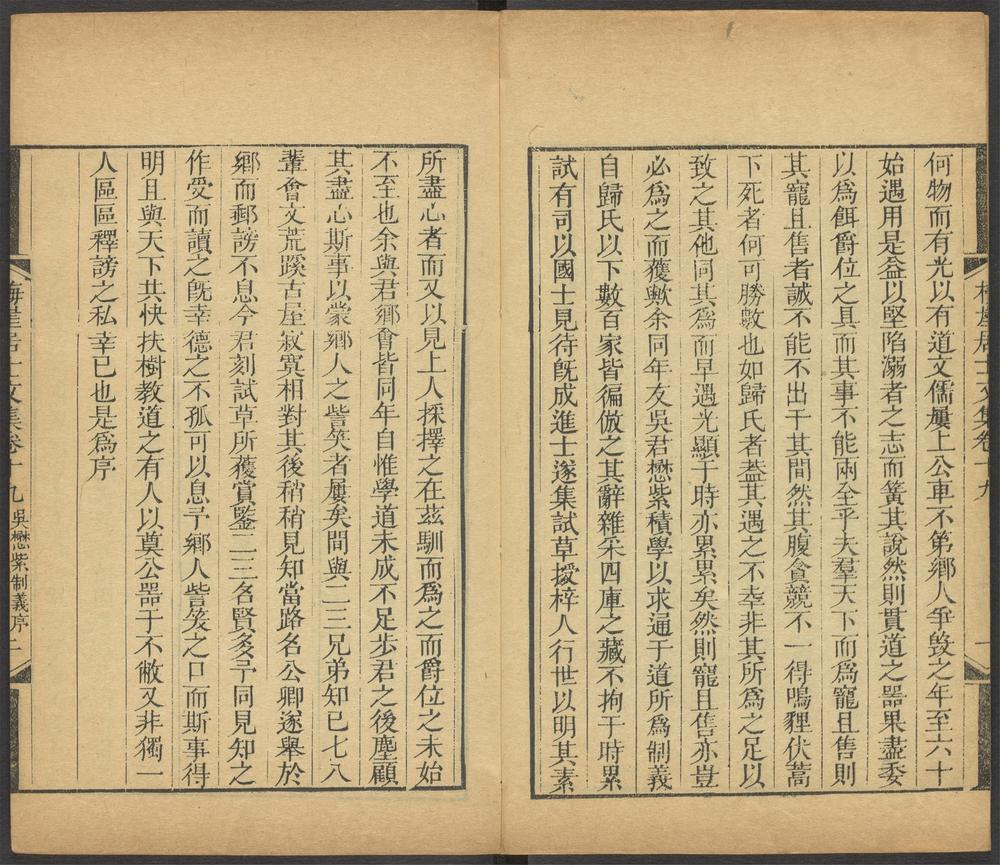 何物而有光以有道文儒屢上公車不第鄉人爭毀之年至六十
始遇用是益以堅陷溺者之志而簧其說然則貫道之器果盡委
以爲餌爵位之具而其事不能兩全乎夫羣天下而爲寵且售則
其寵且售者誠不能不出于其間然其腹貪競不一得鳴貍伏蒿
下死者何可勝數也如歸氏者葢其遇之不幸非其所爲之足以
致之其他同其爲而早遇光顯于時亦累累矣然則寵且售亦豈
必爲之而獲歟余同年友吳君懋紫積學以求逼于道所爲制義
自歸氏以下數百家皆徧倣之其辭雜采四庫之藏不拘于時累
試有司以國士見待旣成進士遂集試草授梓人行世以明其素
所盡心者而又以見上人採擇之在茲馴而爲之而爵位之未始
不至也余與君鄉會皆同年自惟學道未成不足步君之後塵顧
其盡心斯事以蒙鄉人之訾笑者屢矣間與二三兄弟知已七八
輩會文荒蹊古屋寂寞相對其後稍稍見知當路名公卿遂舉於
鄉而郵謗不息今君刻試草所獲賞鑒二三名賢多予同見知之
作受而讀之旣幸德之不孤可以息予鄉人訾笑之口而斯事得
明且與天下共快扶樹教道之有人以奠公器于不敝又非獨一
人區區釋謗之私幸已也是爲序
居士文集卷十九 吳懋紫制義序 二